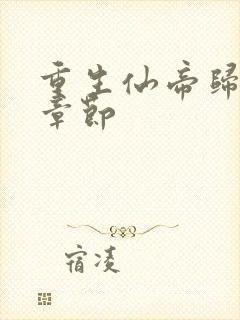 重生仙帝歸
章節
宿凌